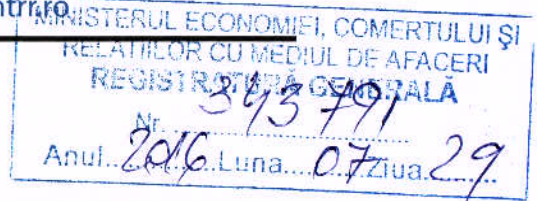 ntrr.ro
MINISTERUL ECONOMIEI, COMERTULUI ŞI
RELATIILOR CU MEDIUL DE AFACERI
REGISTRATURĂ GENERALĂ
Nr. 343791
Anul 2016 Luna 07 Ziua 29